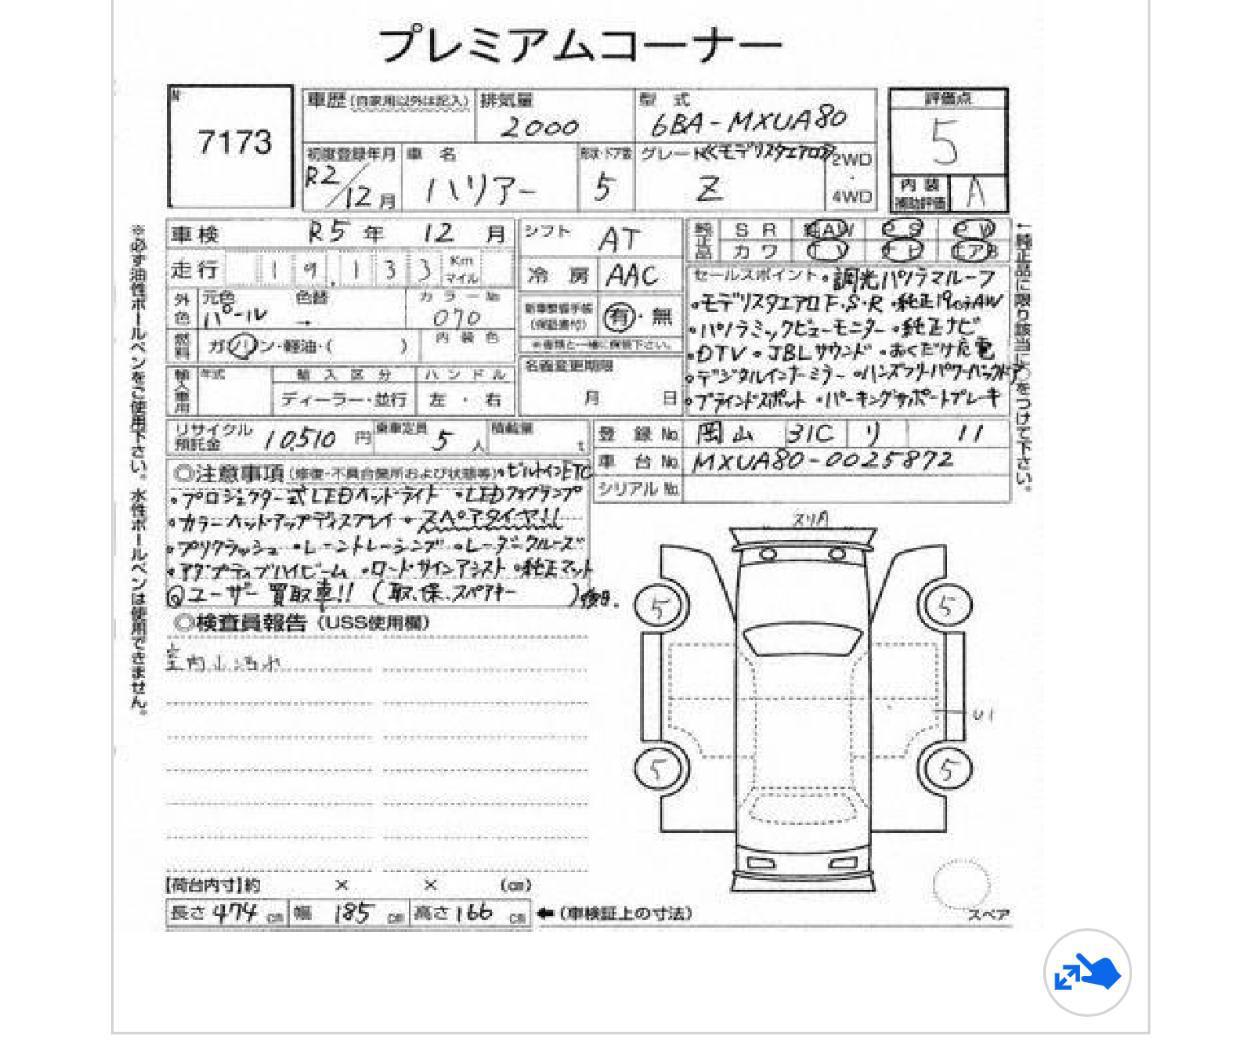 プレミアムコーナー
7173
車歴(自家用以外は記入) 排気量 型式 評価点
2000 6BA-MXUA80 5
初度登録年月 車名 形状・ドア数 グレード (モデリスタエアロ) 2WD・4WD
R2/12月 ハリアー 5 Z
内装補助評価 A
車検 R5年 12月 シフト AT
純正品 SR AW PS PW
カワ TV ナビ エアB
走行 19,133 Km マイル 冷房 AAC
外色 元色 パール 色替 → カラーNo. 070
新車整備手帳(保証書付) 有・無
※書類と一緒に保管下さい。
燃料 ガソリン・軽油・( ) 内装色
名義変更期限 月 日
輸入車用 年式 輸入区分 ハンドル
ディーラー・並行 左・右
セールスポイント・調光パノラマルーフ
・モデリスタエアロF.S.R ・純正19インチAW
・パノラミックビューモニター ・純正ナビ
・DTV ・JBLサウンド ・おくだけ充電
・デジタルインナーミラー ・ハンズフリーパワーバックドア
・ブラインドスポット ・パーキングサポートブレーキ
リサイクル預託金 10,510円 乗車定員 5人 積載量 t
登録No. 岡山 31C り 11
車台No. MXUA80-0025872
シリアルNo.
◎注意事項(修復・不具合箇所および状態等)・ビルトインETC
・プロジェクター式LEDヘッドライト ・LEDフォグランプ
・カラーヘッドアップディスプレイ ・スペアタイヤ!!
・プリクラッシュ ・レーントレーシング ・レーダークルーズ
・アダプティブハイビーム ・ロードサインアシスト ・純正マット
◎ユーザー買取車!! (取.保.スペアキー )後日.
◎検査員報告(USS使用欄)
室内小汚れ
スリA
5 5
U1
5 5
スペア
【荷台内寸】約 × × (cm)
長さ 474 cm 幅 185 cm 高さ 166 cm ←(車検証上の寸法)
※必ず油性ボールペンをご使用下さい。水性ボールペンは使用できません。
←純正品に限り該当に○をつけて下さい。